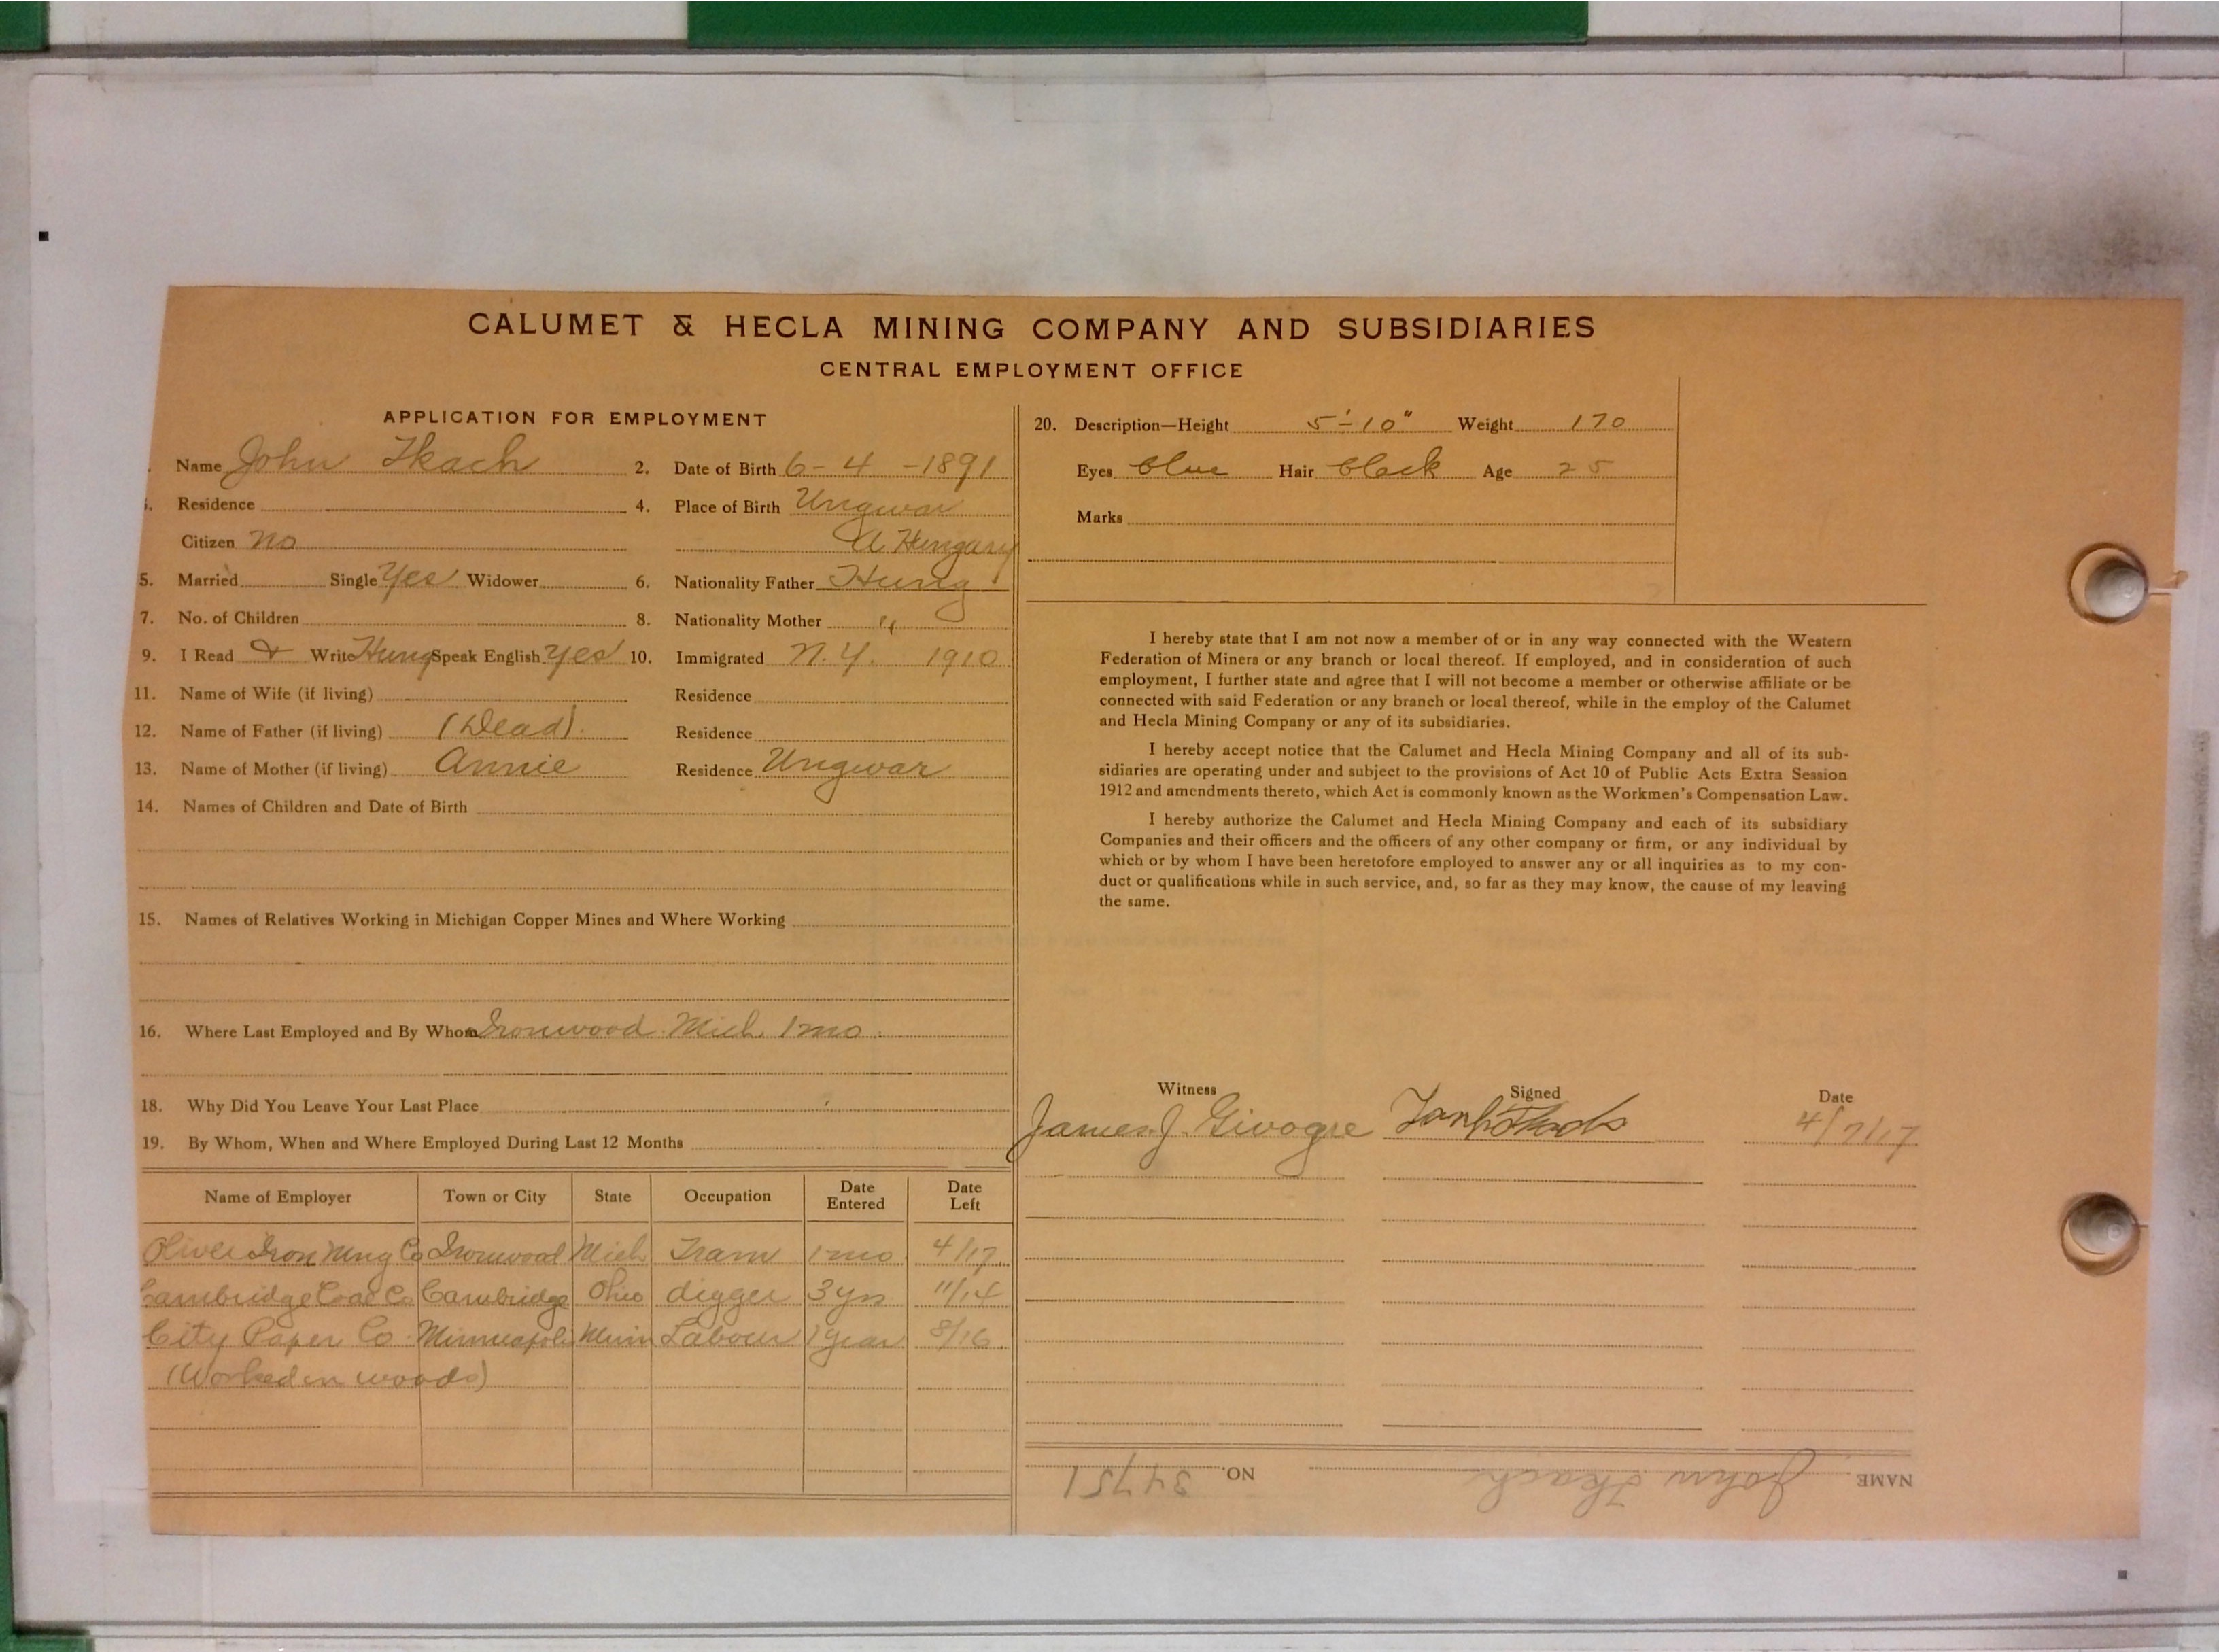 CALUMET & HECLA MINING COMPANY AND SUBSIDIARIES
CENTRAL EMPLOYMENT OFFICE
APPLICATION FOR EMPLOYMENT
Name John Tkach 2. Date of Birth 6-4-1891
Residence 4. Place of Birth Ungwar
Citizen no A Hungary
5. Married Single Yes Widower 6. Nationality Father Hung
7. No. of Children 8. Nationality Mother "
9. I Read & Write Hung Speak English Yes 10. Immigrated N.Y. 1910
11. Name of Wife (if living) Residence
12. Name of Father (if living) (Dead) Residence
13. Name of Mother (if living) Annie Residence Ungwar
14. Names of Children and Date of Birth
15. Names of Relatives Working in Michigan Copper Mines and Where Working
16. Where Last Employed and By Whom Ironwood Mich 1 mo
18. Why Did You Leave Your Last Place
19. By Whom, When and Where Employed During Last 12 Months
Name of Employer Town or City State Occupation Date Entered Date Left
Oliver Iron Mng Co Ironwood Mich Tram 1 mo 4/17
Cambridge Coal Co Cambridge Ohio digger 3 yrs 11/14
City Paper Co. Minneapolis Minn Labour 1 year 8/16
(Worked in woods)
20. Description—Height 5'-10" Weight 170
Eyes blue Hair black Age 25
Marks
I hereby state that I am not now a member of or in any way connected with the Western
Federation of Miners or any branch or local thereof. If employed, and in consideration of such
employment, I further state and agree that I will not become a member or otherwise affiliate or be
connected with said Federation or any branch or local thereof, while in the employ of the Calumet
and Hecla Mining Company or any of its subsidiaries.
I hereby accept notice that the Calumet and Hecla Mining Company and all of its sub-
sidiaries are operating under and subject to the provisions of Act 10 of Public Acts Extra Session
1912 and amendments thereto, which Act is commonly known as the Workmen's Compensation Law.
I hereby authorize the Calumet and Hecla Mining Company and each of its subsidiary
Companies and their officers and the officers of any other company or firm, or any individual by
which or by whom I have been heretofore employed to answer any or all inquiries as to my con-
duct or qualifications while in such service, and, so far as they may know, the cause of my leaving
the same.
Witness Signed Date
James J. 4/7/17
NAME John Tkach NO. 34751